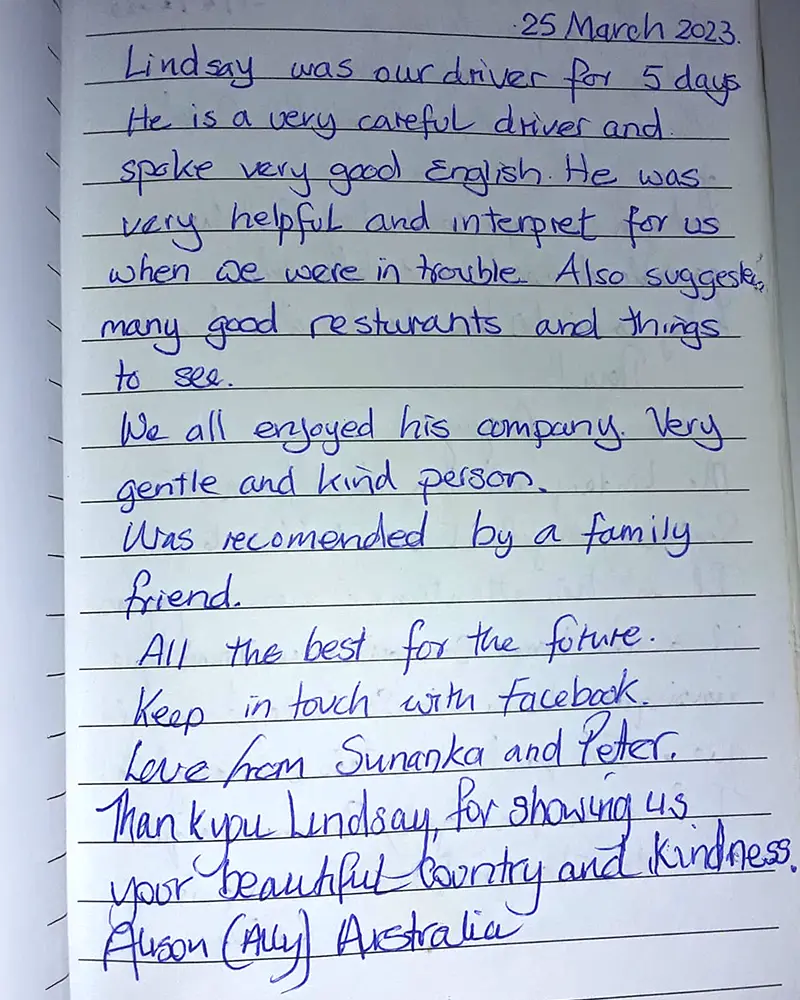 25 March 2023.
Lindsay was our driver for 5 days
He is a very careful driver and
spoke very good English. He was
very helpful and interpret for us
when we were in trouble. Also suggested
many good resturants and things
to see.
We all enjoyed his company. Very
gentle and kind person.
Was recomended by a family
friend.
All the best for the future.
Keep in touch with Facebook.
Love from Sunanka and Peter.
Thankyou Lindsay, for showing us
your beautiful country and kindness.
Alison (Ally) Australia